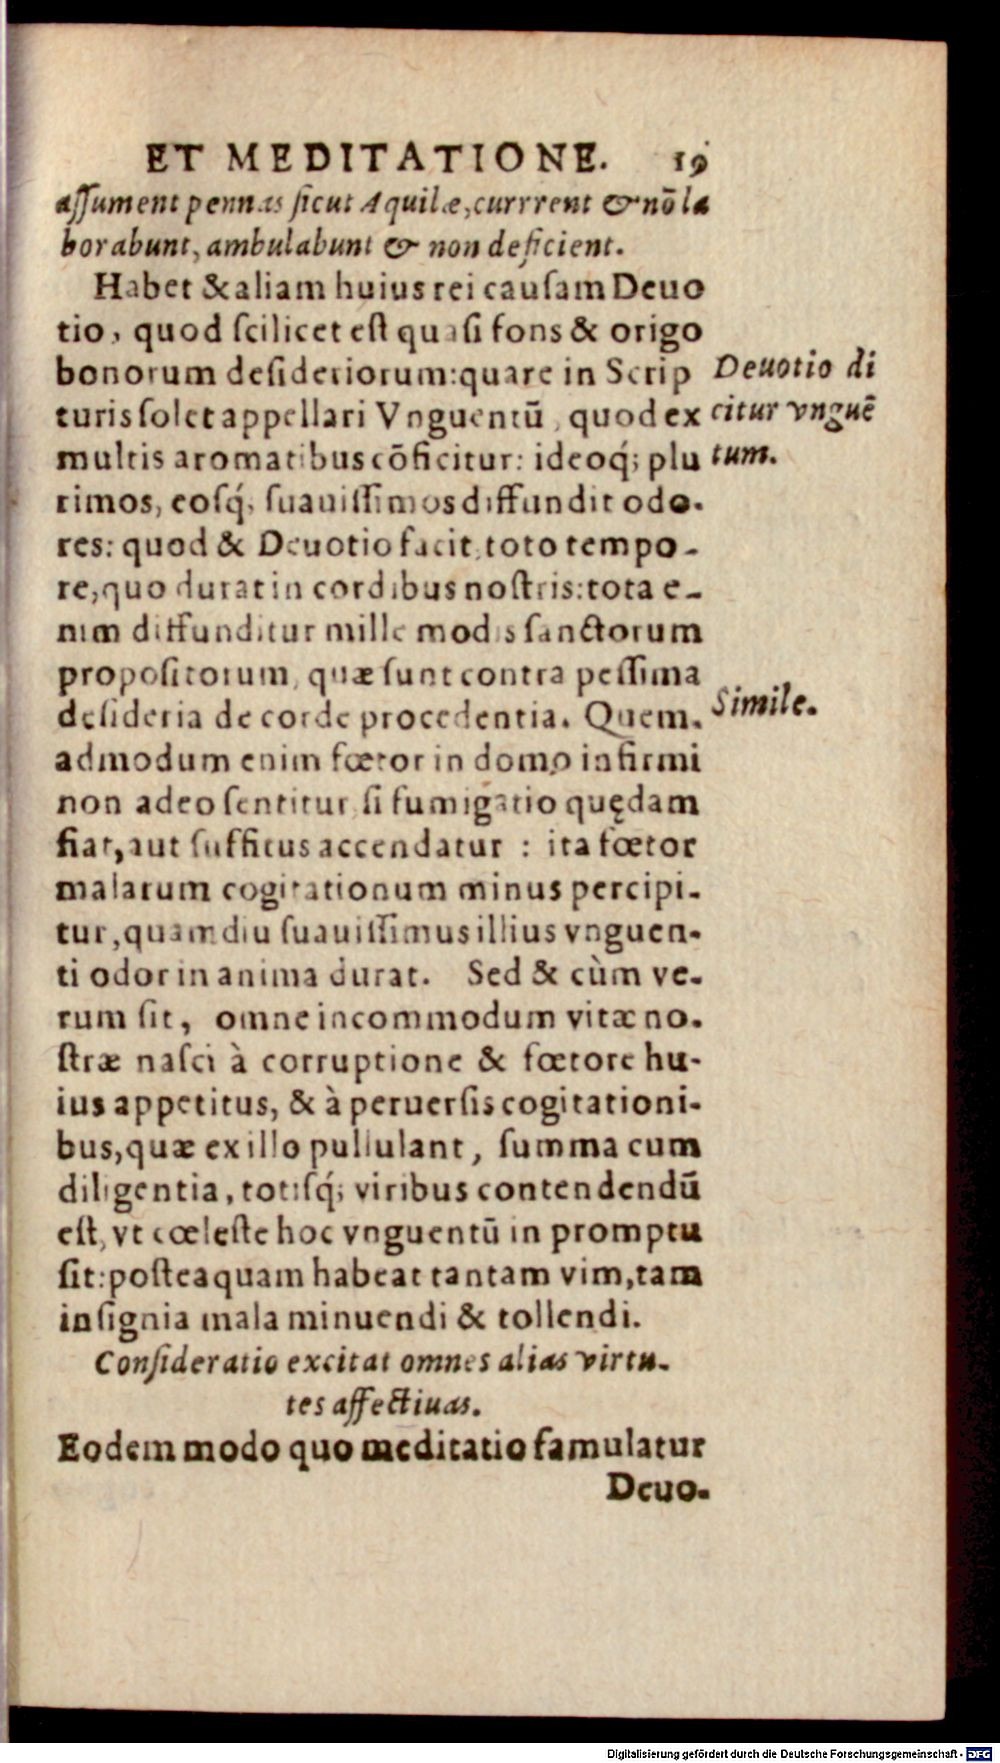 ET MEDITATIONE. 19
aſſument pennas ſicut Aquilæ, currrent & nõ la
borabunt, ambulabunt & non deficient.
Habet & aliam huius rei cauſam Deuo
tio, quod ſcilicet eſt quaſi fons & origo
bonorum deſideriorum: quare in Scrip
turis ſolet appellari Vnguentũ, quod ex
multis aromatibus cõficitur: ideoq́; plu
rimos, eoſq́; ſuauiſſimos diffundit odo-
res: quod & Deuotio facit, toto tempo-
re, quo durat in cordibus noſtris: tota e-
nim diffunditur mille modis ſanctorum
propoſitorum, quæ ſunt contra peſſima
deſideria de corde procedentia. Quem-
admodum enim fœtor in domo infirmi
non adeo ſentitur, ſi fumigatio quędam
fiat, aut ſuffitus accendatur : ita fœtor
malarum cogitationum minus percipi-
tur, quamdiu ſuauiſſimus illius vnguen-
ti odor in anima durat. Sed & cùm ve-
rum ſit, omne incommodum vitæ no-
ſtræ naſci à corruptione & fœtore hu-
ius appetitus, & à peruerſis cogitationi-
bus, quæ ex illo pullulant, ſumma cum
diligentia, totiſq́; viribus contendendũ
eſt, vt cœleſte hoc vnguentũ in promptu
ſit: poſteaquam habeat tantam vim, tam
inſignia mala minuendi & tollendi.
Conſideratio excitat omnes alias virtu-
tes affectiuas.
Eodem modo quo meditatio famulatur
Deuo-
Deuotio di
citur vnguẽ
tum.
Simile.
Digitalisierung gefördert durch die Deutsche Forschungsgemeinschaft - DFG